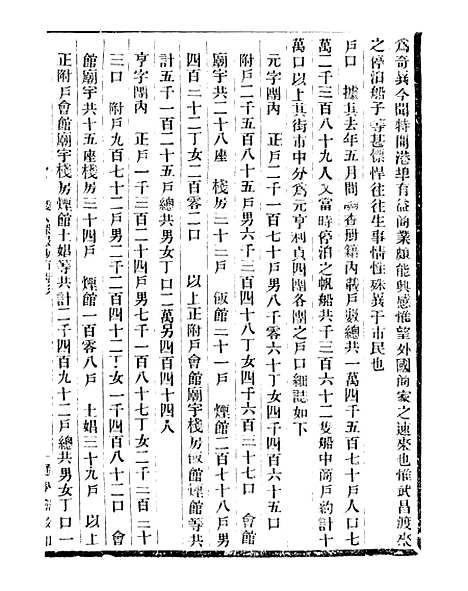 為奇異今聞特開港埠有益商業頗能興感惟望外國商家之速來也惟武昌渡來
之停泊船子等甚慓悍往往生事情性殊異于市民也
戶口 據其去年五月間香冊籍內載戶數總共一萬四千五百七十戶人口七
萬二千三百八十九人又當時停泊之帆船共千三百六十二隻船中商戶約計十
萬口以上其街市中分為元亨利貞四團各團之戶口細誌如下
元字團內 正戶二千一百七十戶男八千零六十丁女四千四百六十五口
附戶二千五百八十五戶男六千三百四十八丁女四千六百三十七口 會館
廟宇共二十八座 棧房二十三戶 飯館二十一戶 煙館二百七十八戶男
四百二十二丁女二百零二口 以上正附戶會館廟宇棧房飯館煙館等共
計五千一百二十五戶總共男女丁口二萬另四百四十四人
亨字團內 正戶一千三百二十四戶男七千一百八十七丁女二千三百二十
三口 附戶九百七十二戶男二千二百四十二丁女一千四百八十二口 會
館廟宇共十五座棧房三十四戶 煙館一百零八戶 土娼三十九戶 以上
正附戶會館廟宇棧房煙館土娼等共計二千四百九十二戶總共男女丁口一